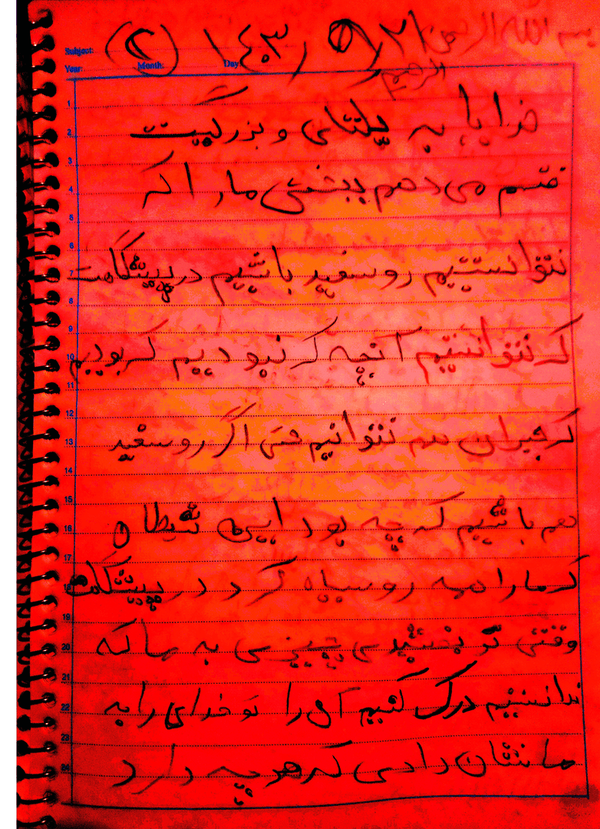 بسم الله الرحمن
الرحیم
Subject: (۲) ۱۴۰۳/۵/۲
Year: Month: Day:
خدایا به یکتای و بزرگیت
قسم می دهم ببخشی ما را که
نتوانستیم روسفید باشیم در پیشگاهت
که نتوانستیم آنچه که نبودیم که بودیم
که جبران هم نتوانیم حتی اگر روسفید
هم باشیم که چه بود این شیطان
که ما را همه روسیاه کرد در پیشگاهت
وقتی تو بخشیدی چیزی به ما که
ندانستیم درک کنیم آن را تو خدای را به
ما نشان دادی که هر چه دارد